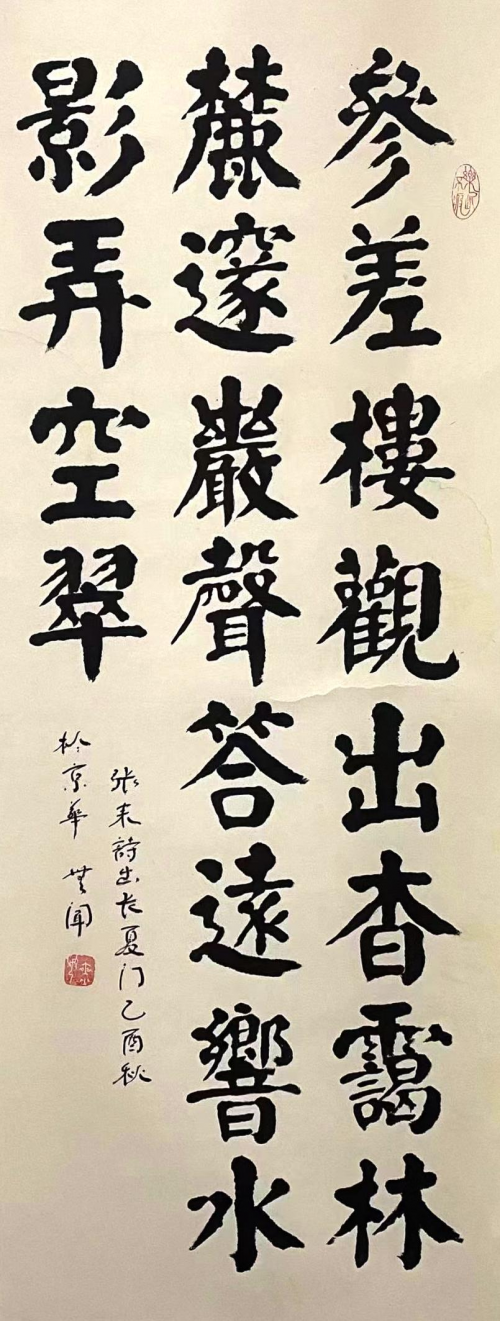 參差樓觀出杳靄林
麓邃巖聲答遠響水
影弄空翠
张耒詩出长夏门乙酉秋
於京華 無聞